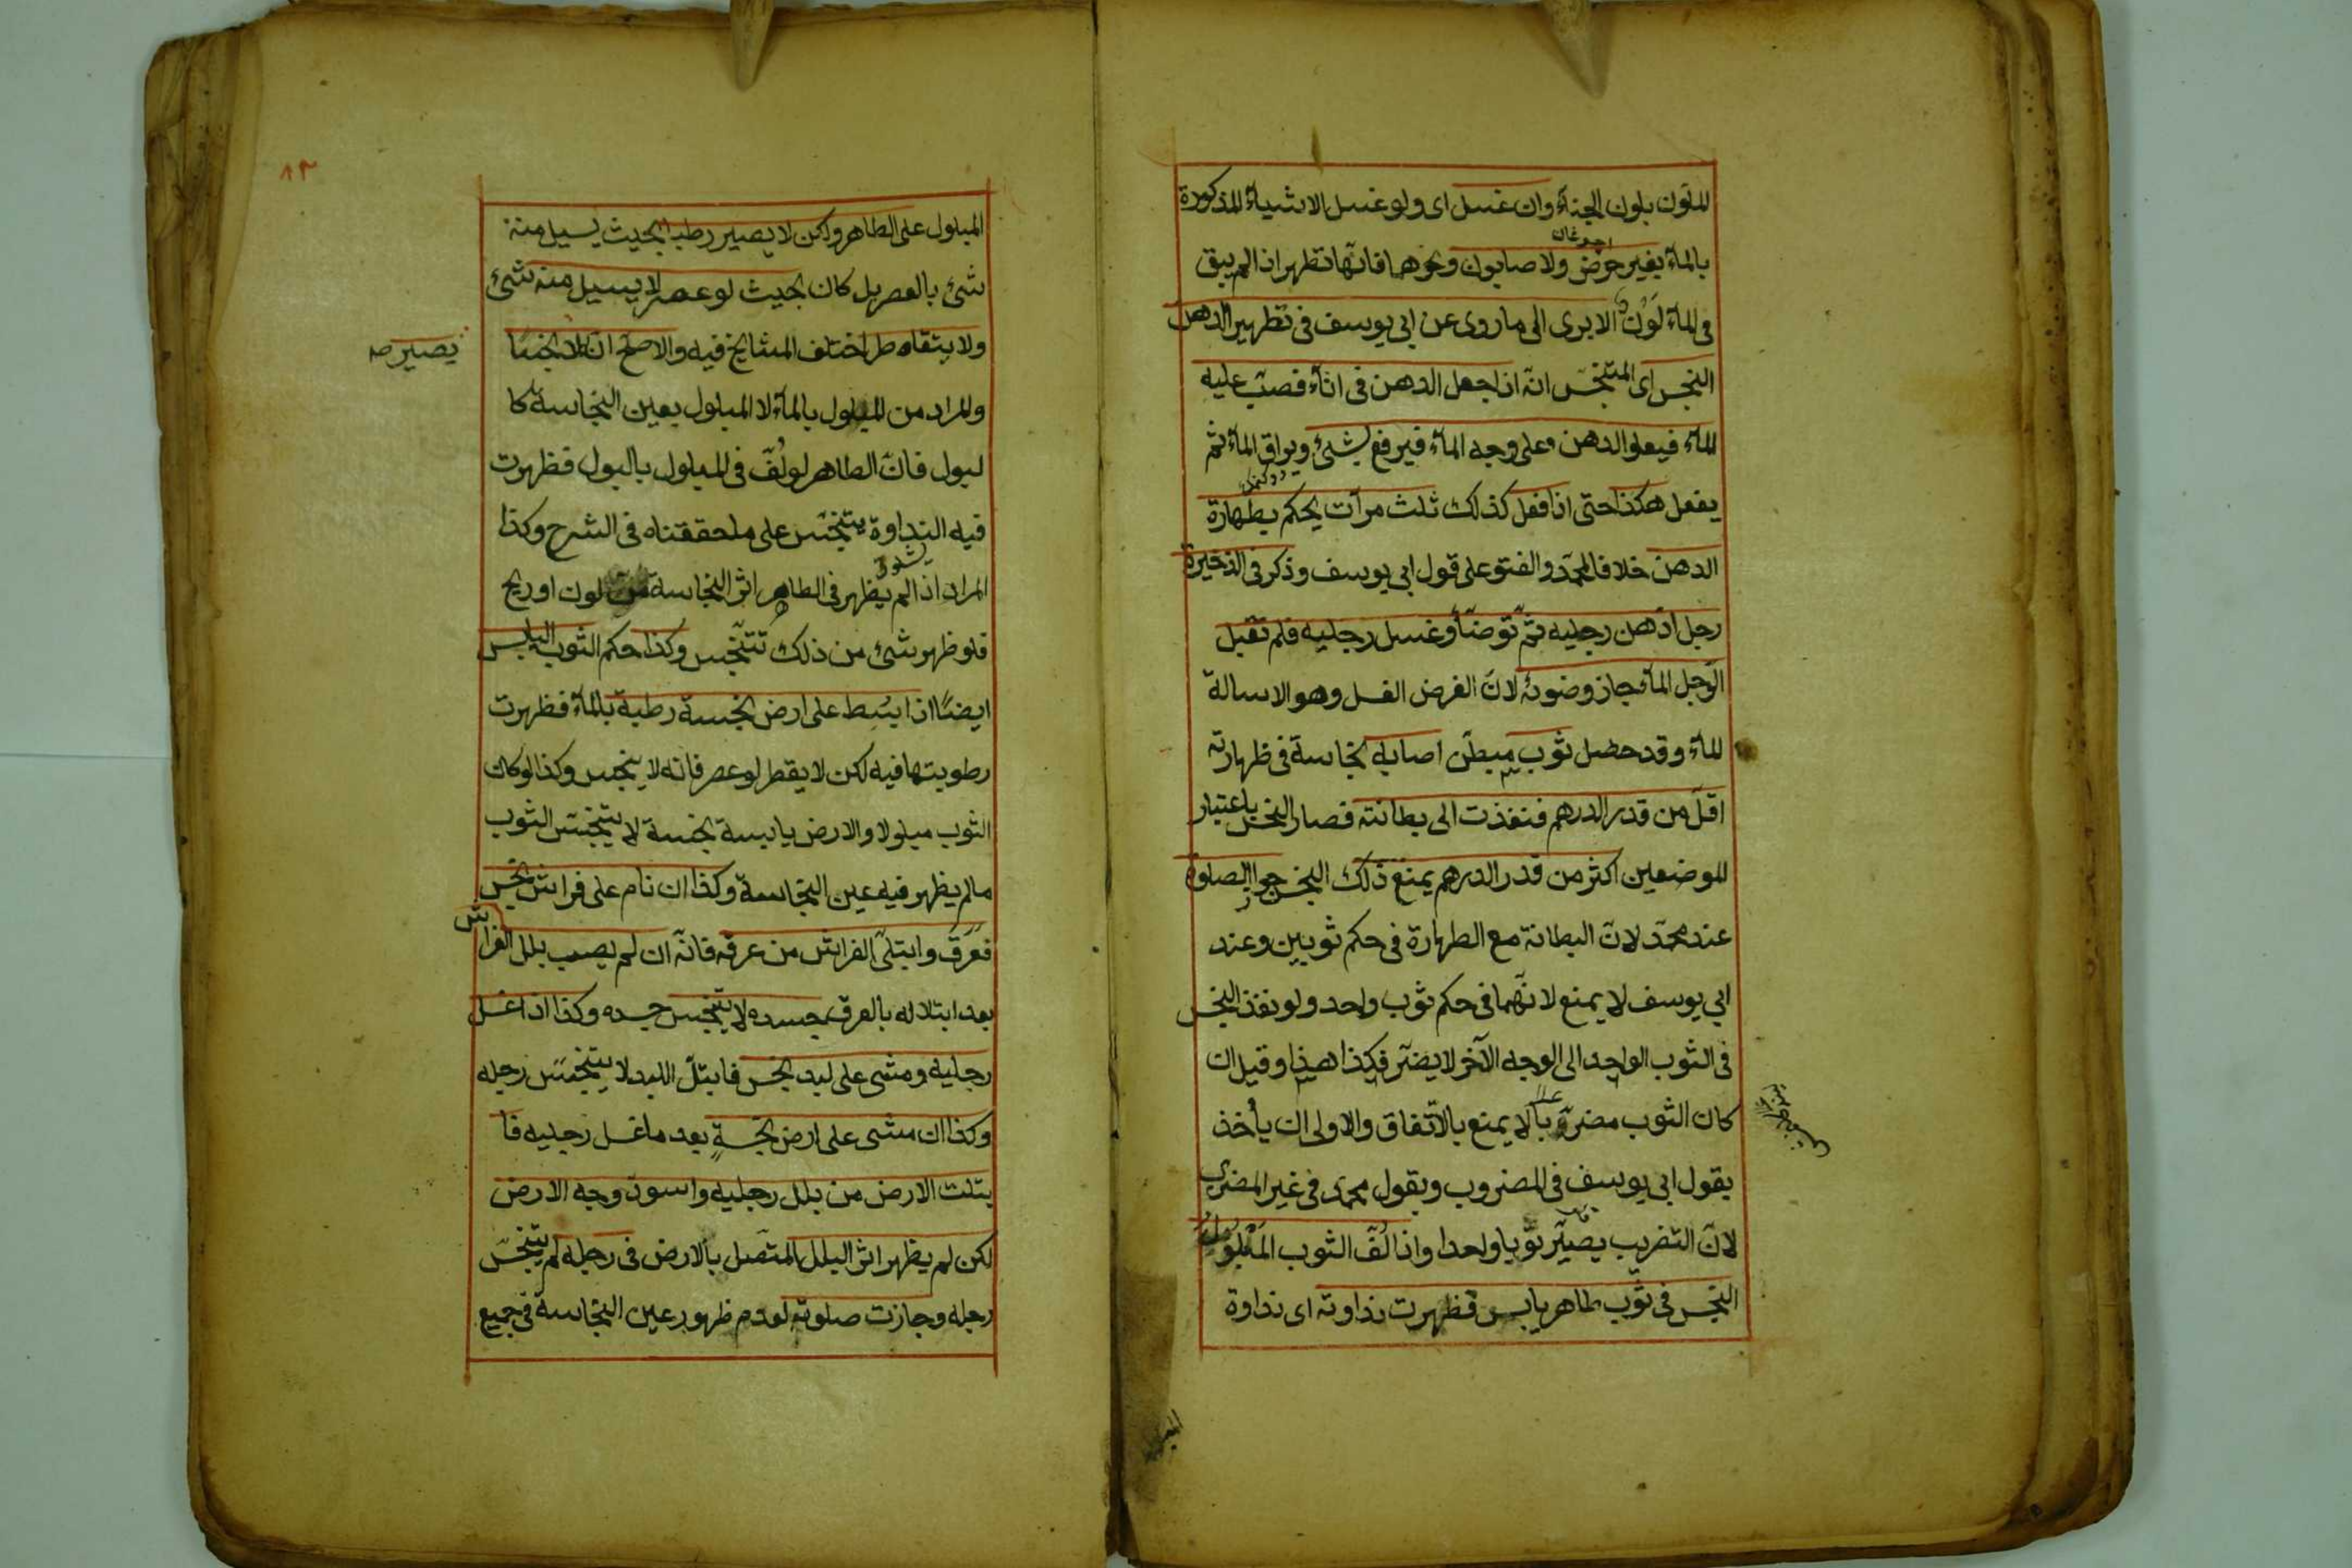 الملون بلون الحناء وان غسل اى ولو غسل الاشياء المذكورة
بالماء بغير حرض ولا صابون ونحوهما فانها تطهر اذا لم يبق
فى الماء لون الا يرى الى ما روى عن ابى يوسف فى تطهير الدهن
النجس اى المتنجس انه اذا جعل الدهن فى اناء فصب عليه
الماء فيعلو الدهن على وجه الماء فيرفع بشئ ويراق الماء ثم
يفعل هكذا حتى اذا فعل كذلك ثلث مرات يحكم بطهارة
الدهن خلافا لمحمد والفتوى على قول ابى يوسف وذكر فى الذخيرة
رجل ادهن رجليه ثم توضأ وغسل رجليه فلم تقبل
الرجل الماء جاز وضوئه لان الفرض الغسل وهو الاسالة
للماء وقد حصل ثوب مبطن اصابه نجاسة فى ظهارته
اقل من قدر الدرهم فنفذت الى بطانته فصار النجس باعتبار
الموضعين اكثر من قدر الدرهم يمنع ذلك النجس جواز الصلوة
عند محمد لان البطانة مع الظهارة فى حكم ثوبين وعند
ابى يوسف لا يمنع لانهما فى حكم ثوب واحد ولو نفذ النجس
فى الثوب الواحد الى الوجه الآخر لا يضر فكذا هذا وقيل ان
كان الثوب مضربا لا يمنع بالاتفاق والاولى ان يأخذ
بقول ابى يوسف فى المضروب وبقول محمد فى غير المضرب
لان التضريب يصير ثوبا واحدا واذا لف الثوب المبلول
النجس فى ثوب طاهر يابس فظهرت نداوته اى نداوة
٨٣
المبلول على الطاهر ولكن لا يصير رطبا بحيث يسيل منه
شئ بالعصر بل كان بحيث لو عصر لا يسيل منه شئ
ولا يتقاطر اختلف المشايخ فيه والاصح انه لا نجسا
يصير صح
والمراد من المبلول بالماء لا المبلول بعين النجاسة كا
لبول فان الطاهر لو لف فى المبلول بالبول فظهرت
فيه النداوة يتنجس على ما حققناه فى الشرح وكذا
المراد اذا لم يظهر فى الطاهر اثر النجاسة من لون او ريح
فلو ظهر شئ من ذلك تتنجس وكذا حكم الثوب اليابس
ايضا اذا بسط على ارض نجسة رطبة بالماء فظهرت
رطوبتها فيه لكن لا يقطر لو عصر فانه لا ينجس وكذا لو كان
الثوب مبلولا والارض يابسة نجسة لا يتنجس الثوب
مالم يظهر فيه عين النجاسة وكذا ان نام على فراش نجس
فعرق وابتل الفراش من عرقه فانه ان لم يصب بلل الفراش
بعد ابتلاله بالعرق جسده لا يتنجس جسده وكذا اذا غسل
رجليه ومشى على لبد نجس فابتل اللبد لا يتنجس رجله
وكذا ان مشى على ارض نجسة بعد ما غسل رجليه فا
بتلت الارض من بلل رجليه واسود وجه الارض
لكن لم يظهر اثر البلل المتصل بالارض فى رجله لم يتنجس
رجله وجازت صلوته لعدم ظهور عين النجاسة فى جميع